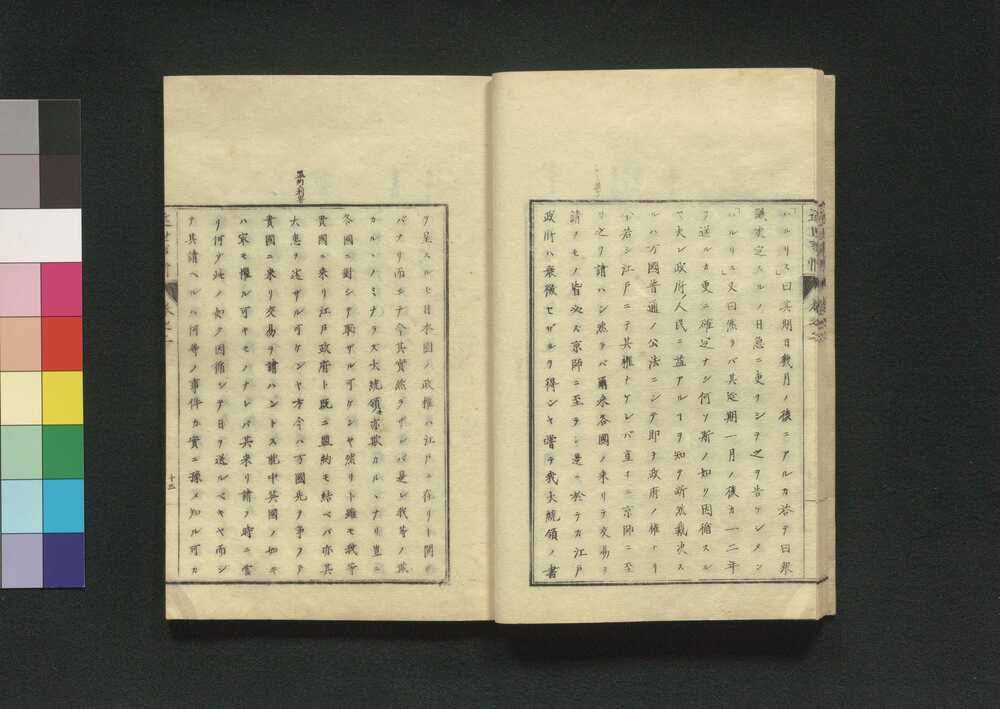 「ハルリス」曰其期日幾月ノ後ニアルカ答テ曰衆
議決定スルノ日急ニ更リシヲ之ヲ告ゲシメン
「ハルリス」又曰然ラバ其延期一月ノ後カ一二年
ヲ送ルカ更ニ確定ナシ何ソ斯ノ如ク因循スル
ヤ夫レ政府人民ニ益アルヲ知テ所置裁決ス
ルハ万國普通ノ公法ニシテ即チ政府ノ権ナリ
若シ江戸ニテ其権ナケレバ直チニ京師ニ至
リ之ヲ請ハン然ラバ爾来各國ノ来リテ交易ヲ
請フモノ皆必ズ京師ニ至ラン是ニ於テハ江戸
政府ハ衰微セザルヲ得ンヤ嘗テ我大統領ノ書
ヲ呈スルモ日本國ノ政権ハ江戸ニ在リト聞ケ
バナリ而シテ今其實然ラザレバ是レ我等ノ欺
カルヽノミナラズ大統領亦欺カルヽナリ豈ニ
各國ニ對シテ恥ザル可ケンヤ然リト雖モ我等
貴國ニ来リ江戸政府ト既ニ盟約モ結ベバ亦其
大意ヲ述ザル可ケンヤ方今ハ万國先ヲ争フテ
貴國ニ来リ交易ヲ請ハントス就中英國ノ如キ
ハ最モ懼ル可キモノナレバ其来リ請フ時ニ當
リ何ゾ此ノ如ク因循シテ日ヲ送ルベキヤ而シ
テ其請ヘルハ何等ノ事件カ實ニ豫メ知ル可カ
十三